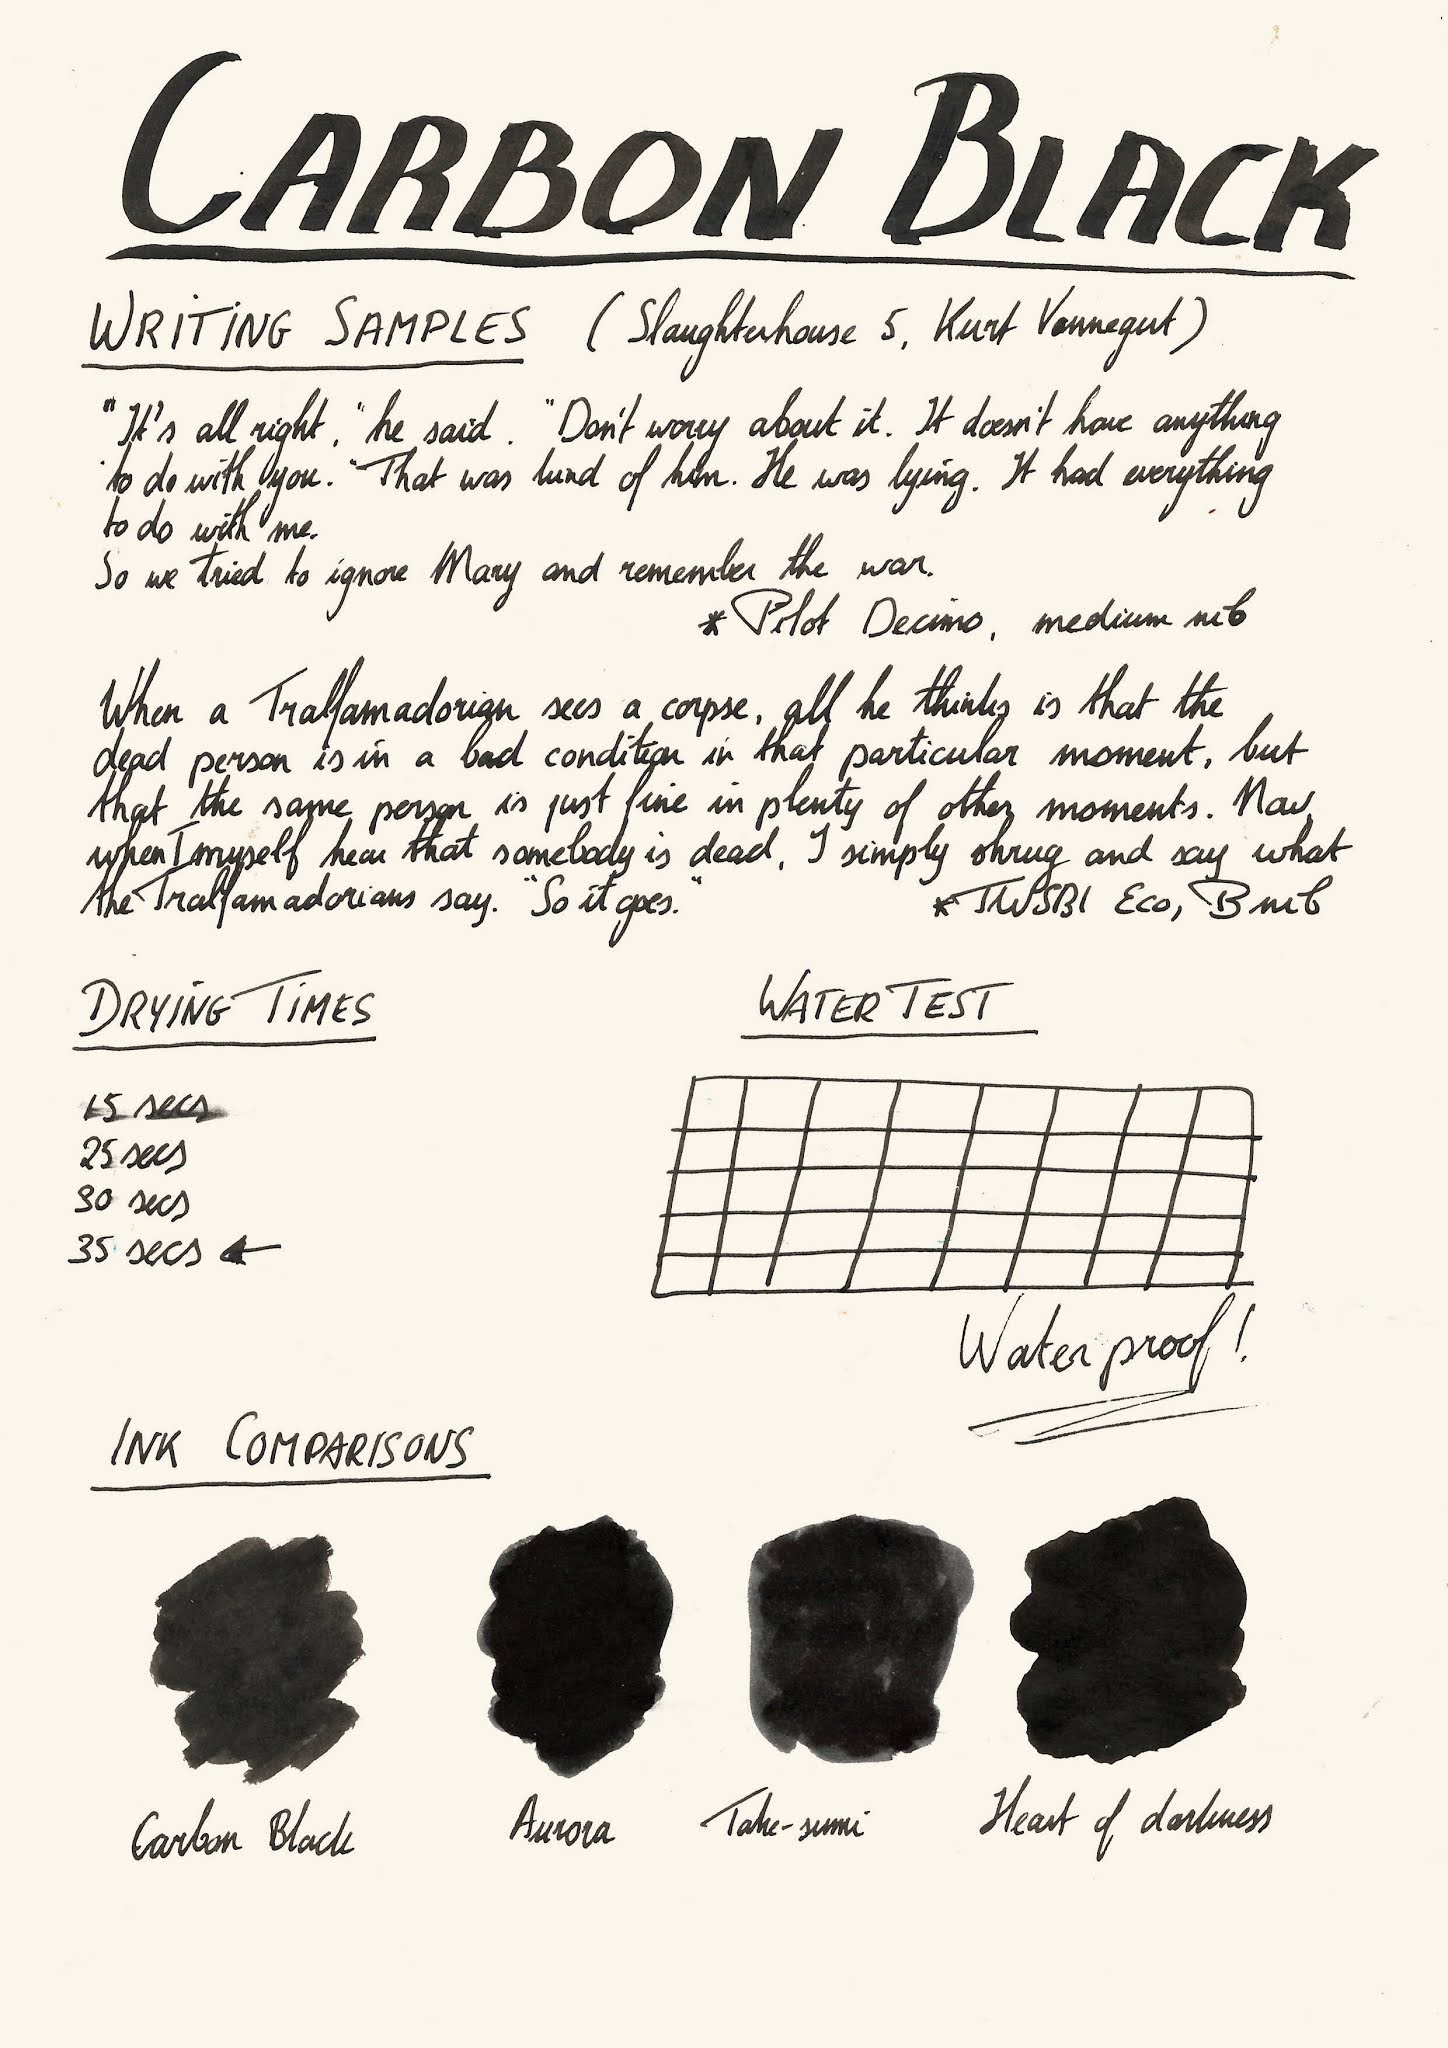 CARBON BLACK
WRITING SAMPLES (Slaughterhouse 5, Kurt Vonnegut)
"It's all right," he said. "Don't worry about it. It doesn't have anything
to do with you." That was kind of him. He was lying. It had everything
to do with me.
So we tried to ignore Mary and remember the war.
* Pilot Decimo, medium nib
When a Tralfamadorian sees a corpse, all he thinks is that the
dead person is in a bad condition in that particular moment, but
that the same person is just fine in plenty of other moments. Now,
when I myself hear that somebody is dead, I simply shrug and say what
the Tralfamadorians say. "So it goes."
* TWSBI Eco, B nib
DRYING TIMES
WATER TEST
15 secs
25 secs
30 secs
35 secs ←
Waterproof!
INK COMPARISONS
Carbon Black
Aurora
Take-sumi
Heart of darkness